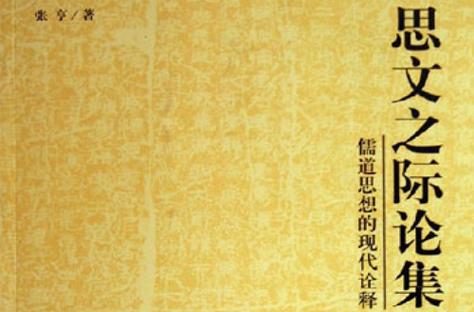 张 亨/著
思文之际论集
儒道思想的现代诠释